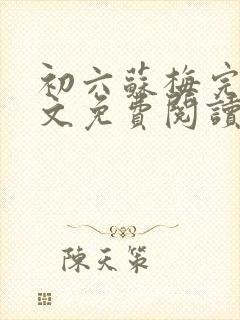 初六蘇梅完
文免費閱讀
陳天策